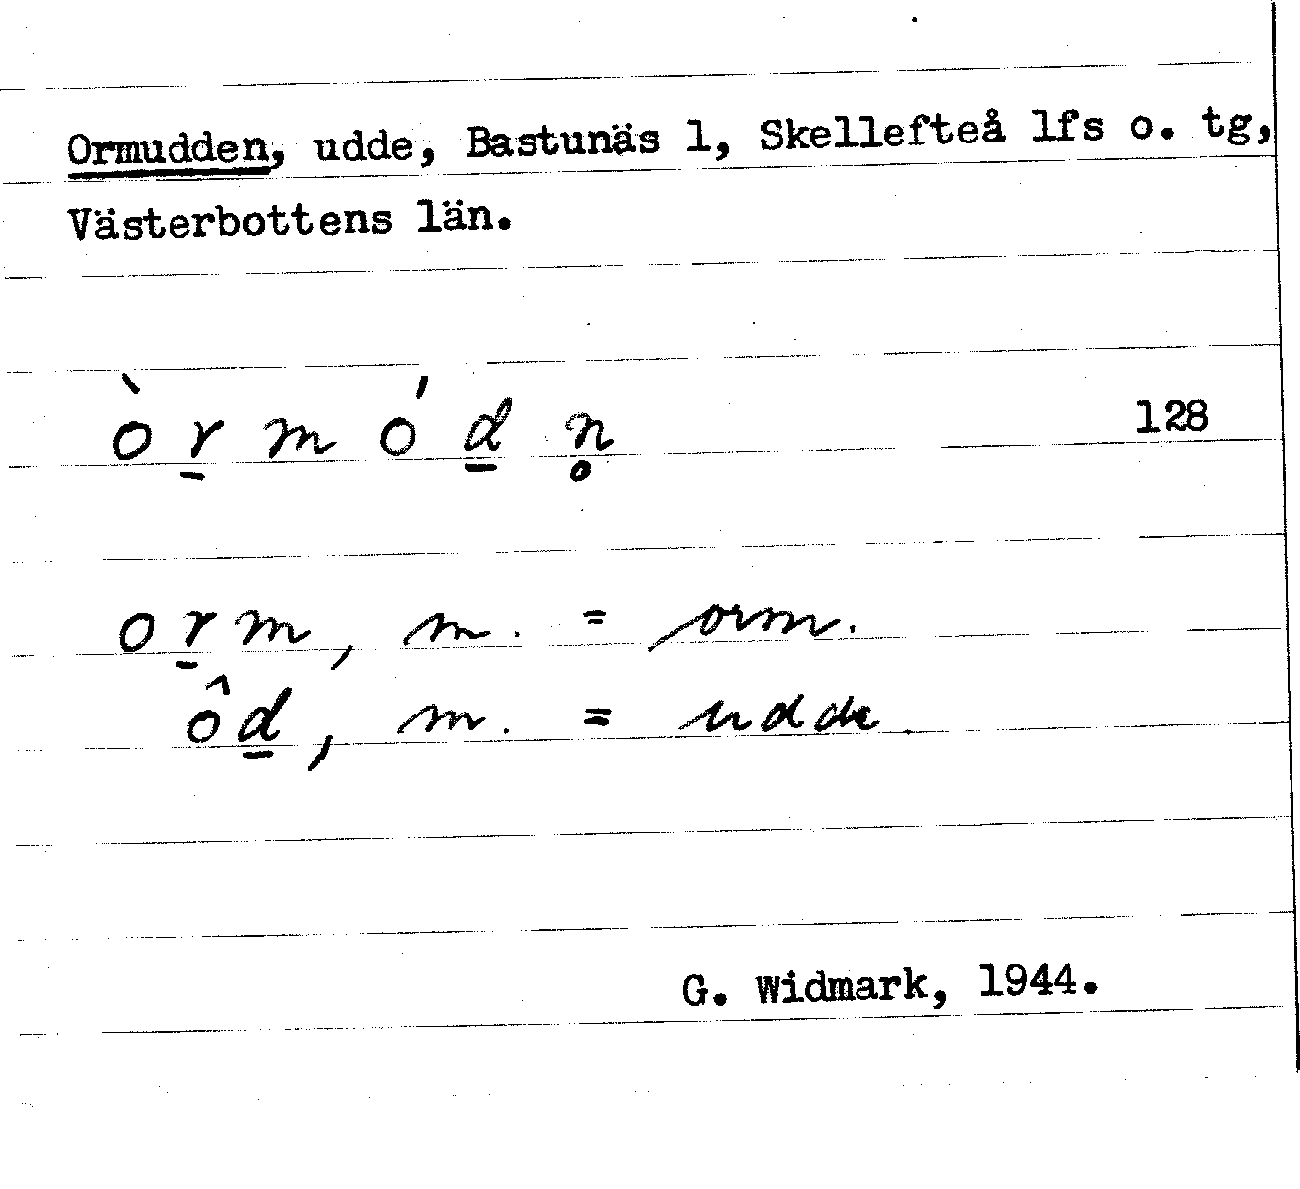 Ormudden, udde, Bastunäs 1, Skellefteå lfs o. tg,
Västerbottens län.
ò r̲ m ó d̲ n̥ 128
o r̲ m, m. = orm.
ô d̲, m. = udde.
G. Widmark, 1944.